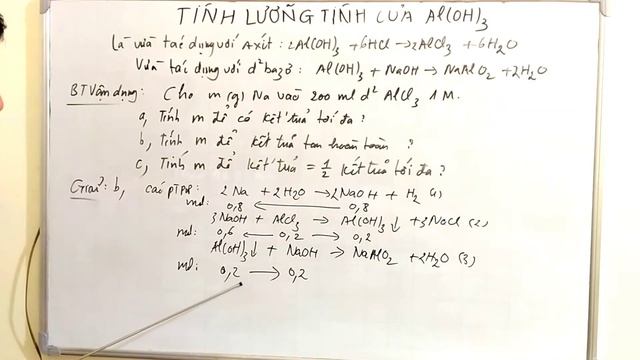 TÍNH LƯỠNG TÍNH CỦA Al(OH)3
Là vừa tác dụng với Axít: 2Al(OH)3 + 6HCl → 2AlCl3 + 6H2O
Vừa tác dụng với d² bazơ: Al(OH)3 + NaOH → NaAlO2 + 2H2O
BT Vận dụng: Cho m (g) Na vào 200 ml d² AlCl3 1M.
a, Tính m để có kết tủa tối đa?
b, Tính m để kết tủa tan hoàn toàn?
c, Tính m để kết tủa = 1/2 kết tủa tối đa?
Giải: b, các PTPƯ: 2Na + 2H2O → 2NaOH + H2 (1)
mol: 0,8 ← 0,8
3NaOH + AlCl3 → Al(OH)3↓ + 3NaCl (2)
mol: 0,6 ← 0,2 → 0,2
Al(OH)3↓ + NaOH → NaAlO2 + 2H2O (3)
mol: 0,2 → 0,2